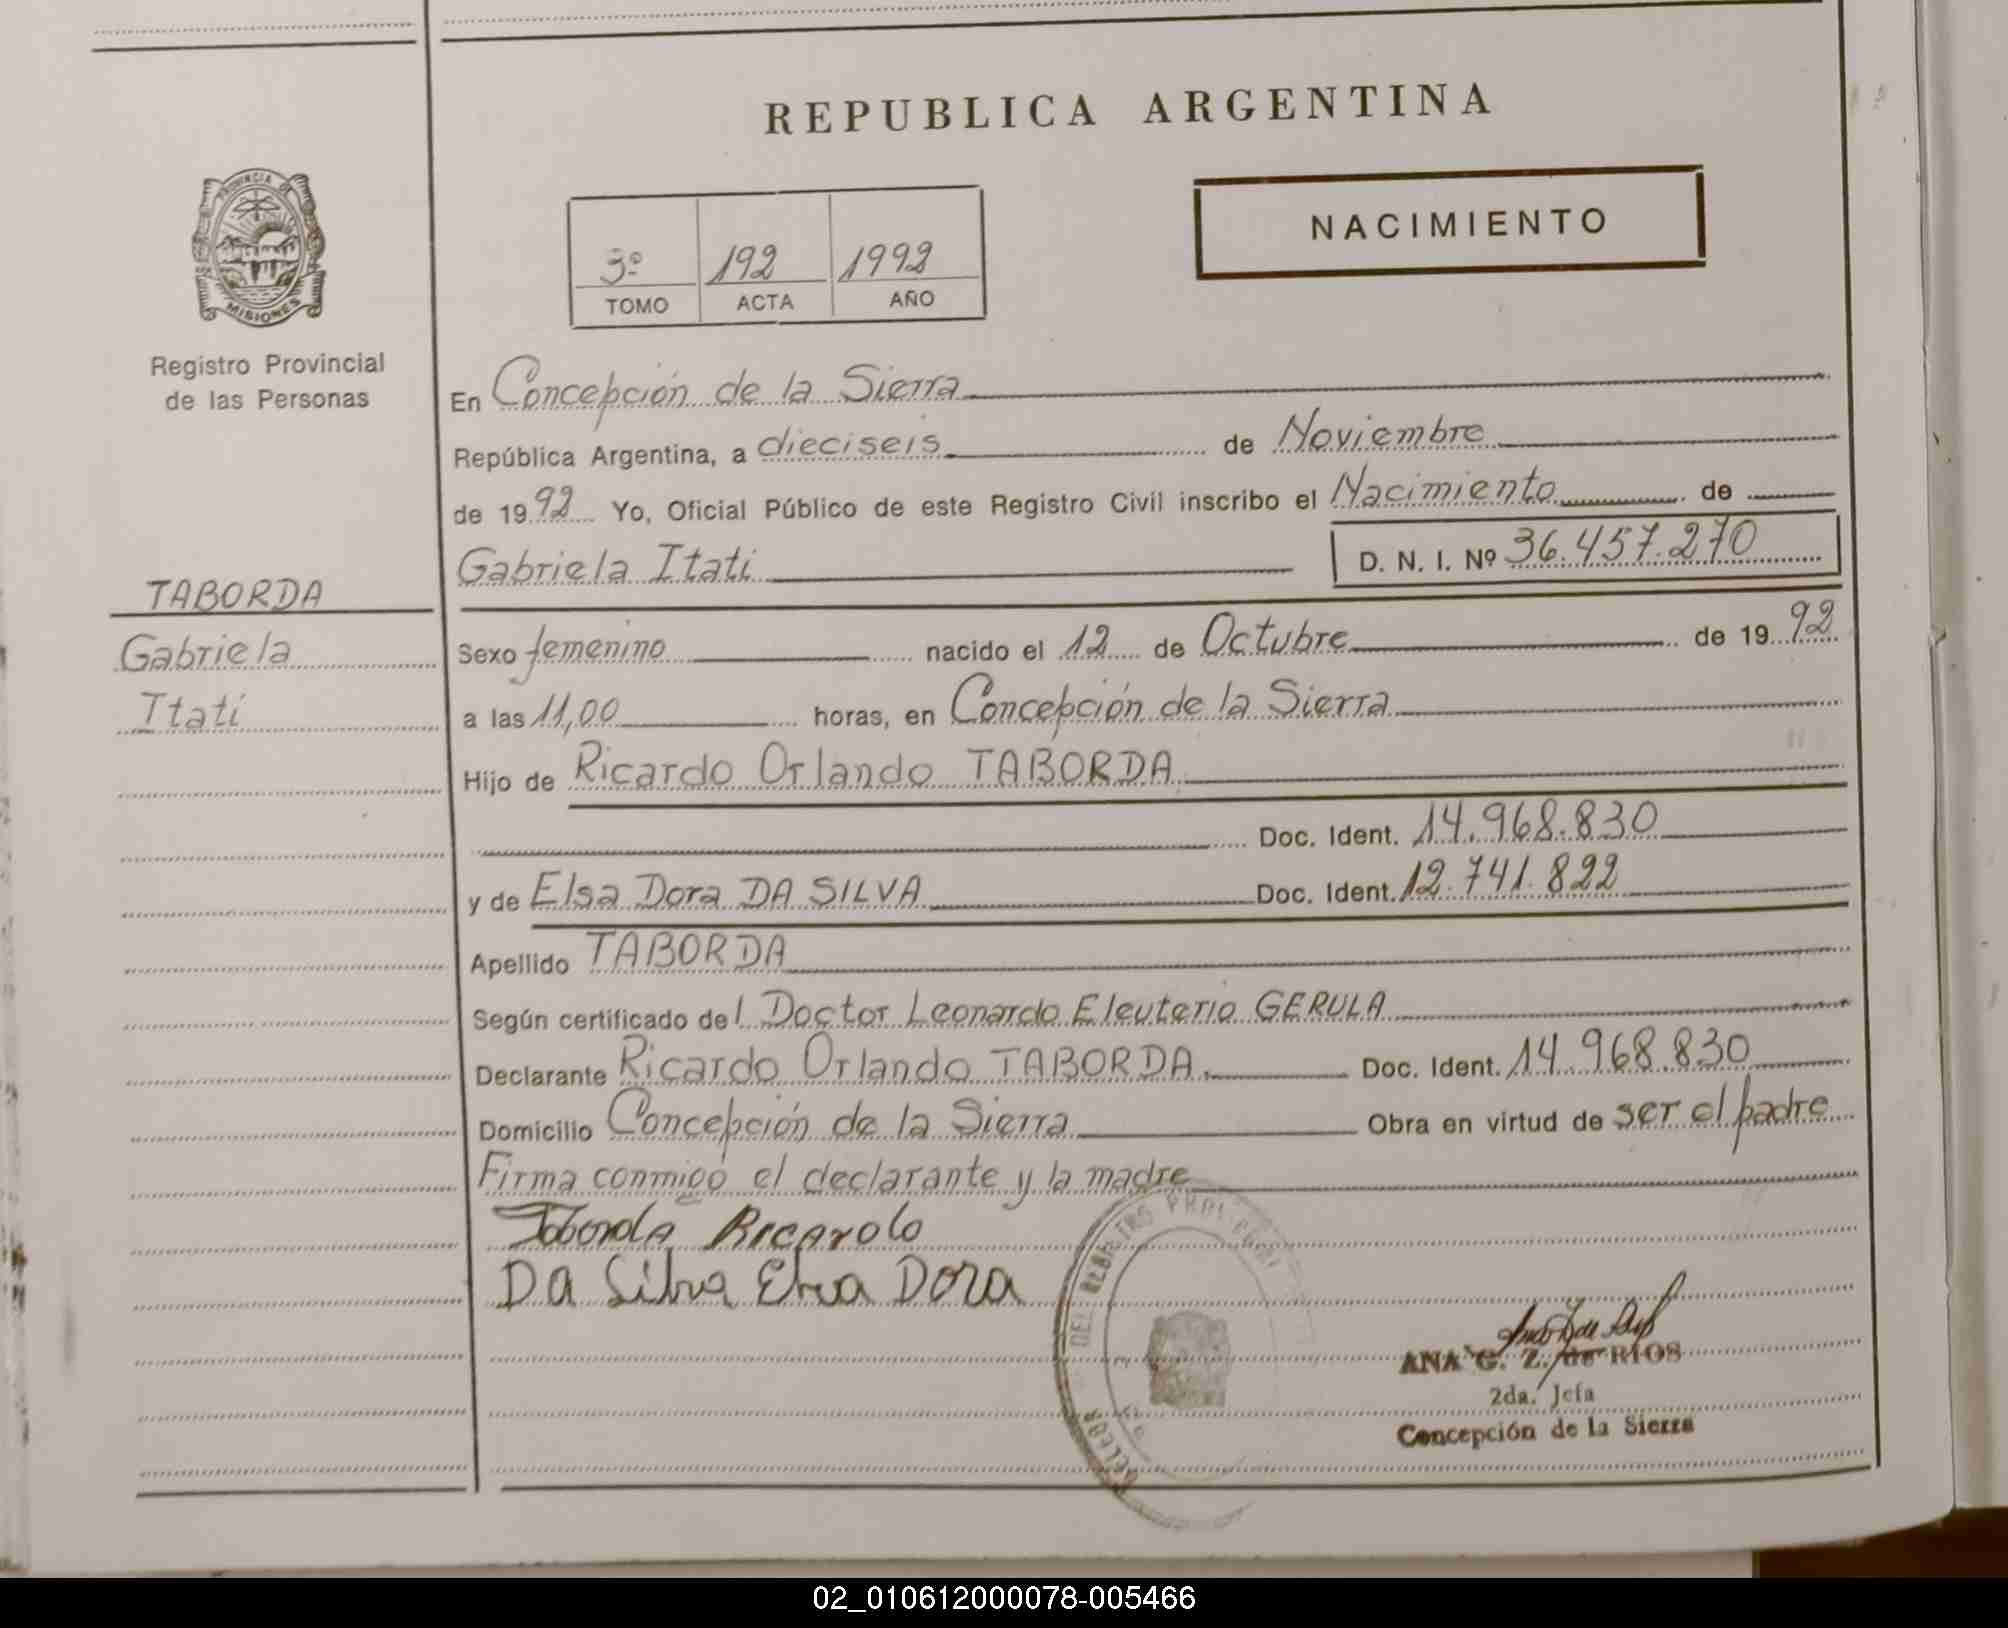 REPUBLICA ARGENTINA
PROVINCIA DE MISIONES
Registro Provincial
de las Personas
3º 192 1992
TOMO ACTA AÑO
NACIMIENTO
En Concepción de la Sierra
República Argentina, a dieciseis de Noviembre
de 1992 Yo, Oficial Público de este Registro Civil inscribo el Nacimiento de
Gabriela Itatí D. N. I. Nº 36.457.270
TABORDA
Gabriela
Itatí
Sexo femenino nacido el 12 de Octubre de 1992
a las 11,00 horas, en Concepción de la Sierra
Hijo de Ricardo Orlando TABORDA
Doc. Ident. 14.968.830
y de Elsa Dora DA SILVA Doc. Ident. 12.741.822
Apellido TABORDA
Según certificado del Doctor Leonardo Eleuterio GERULA
Declarante Ricardo Orlando TABORDA. Doc. Ident. 14.968.830
Domicilio Concepción de la Sierra Obra en virtud de ser el padre
Firma conmigo el declarante y la madre
Taborda Ricardo
Da Silva Elsa Dora
ANA G. Z. de RIOS
2da. Jefa
Concepción de la Sierra
02_010612000078-005466